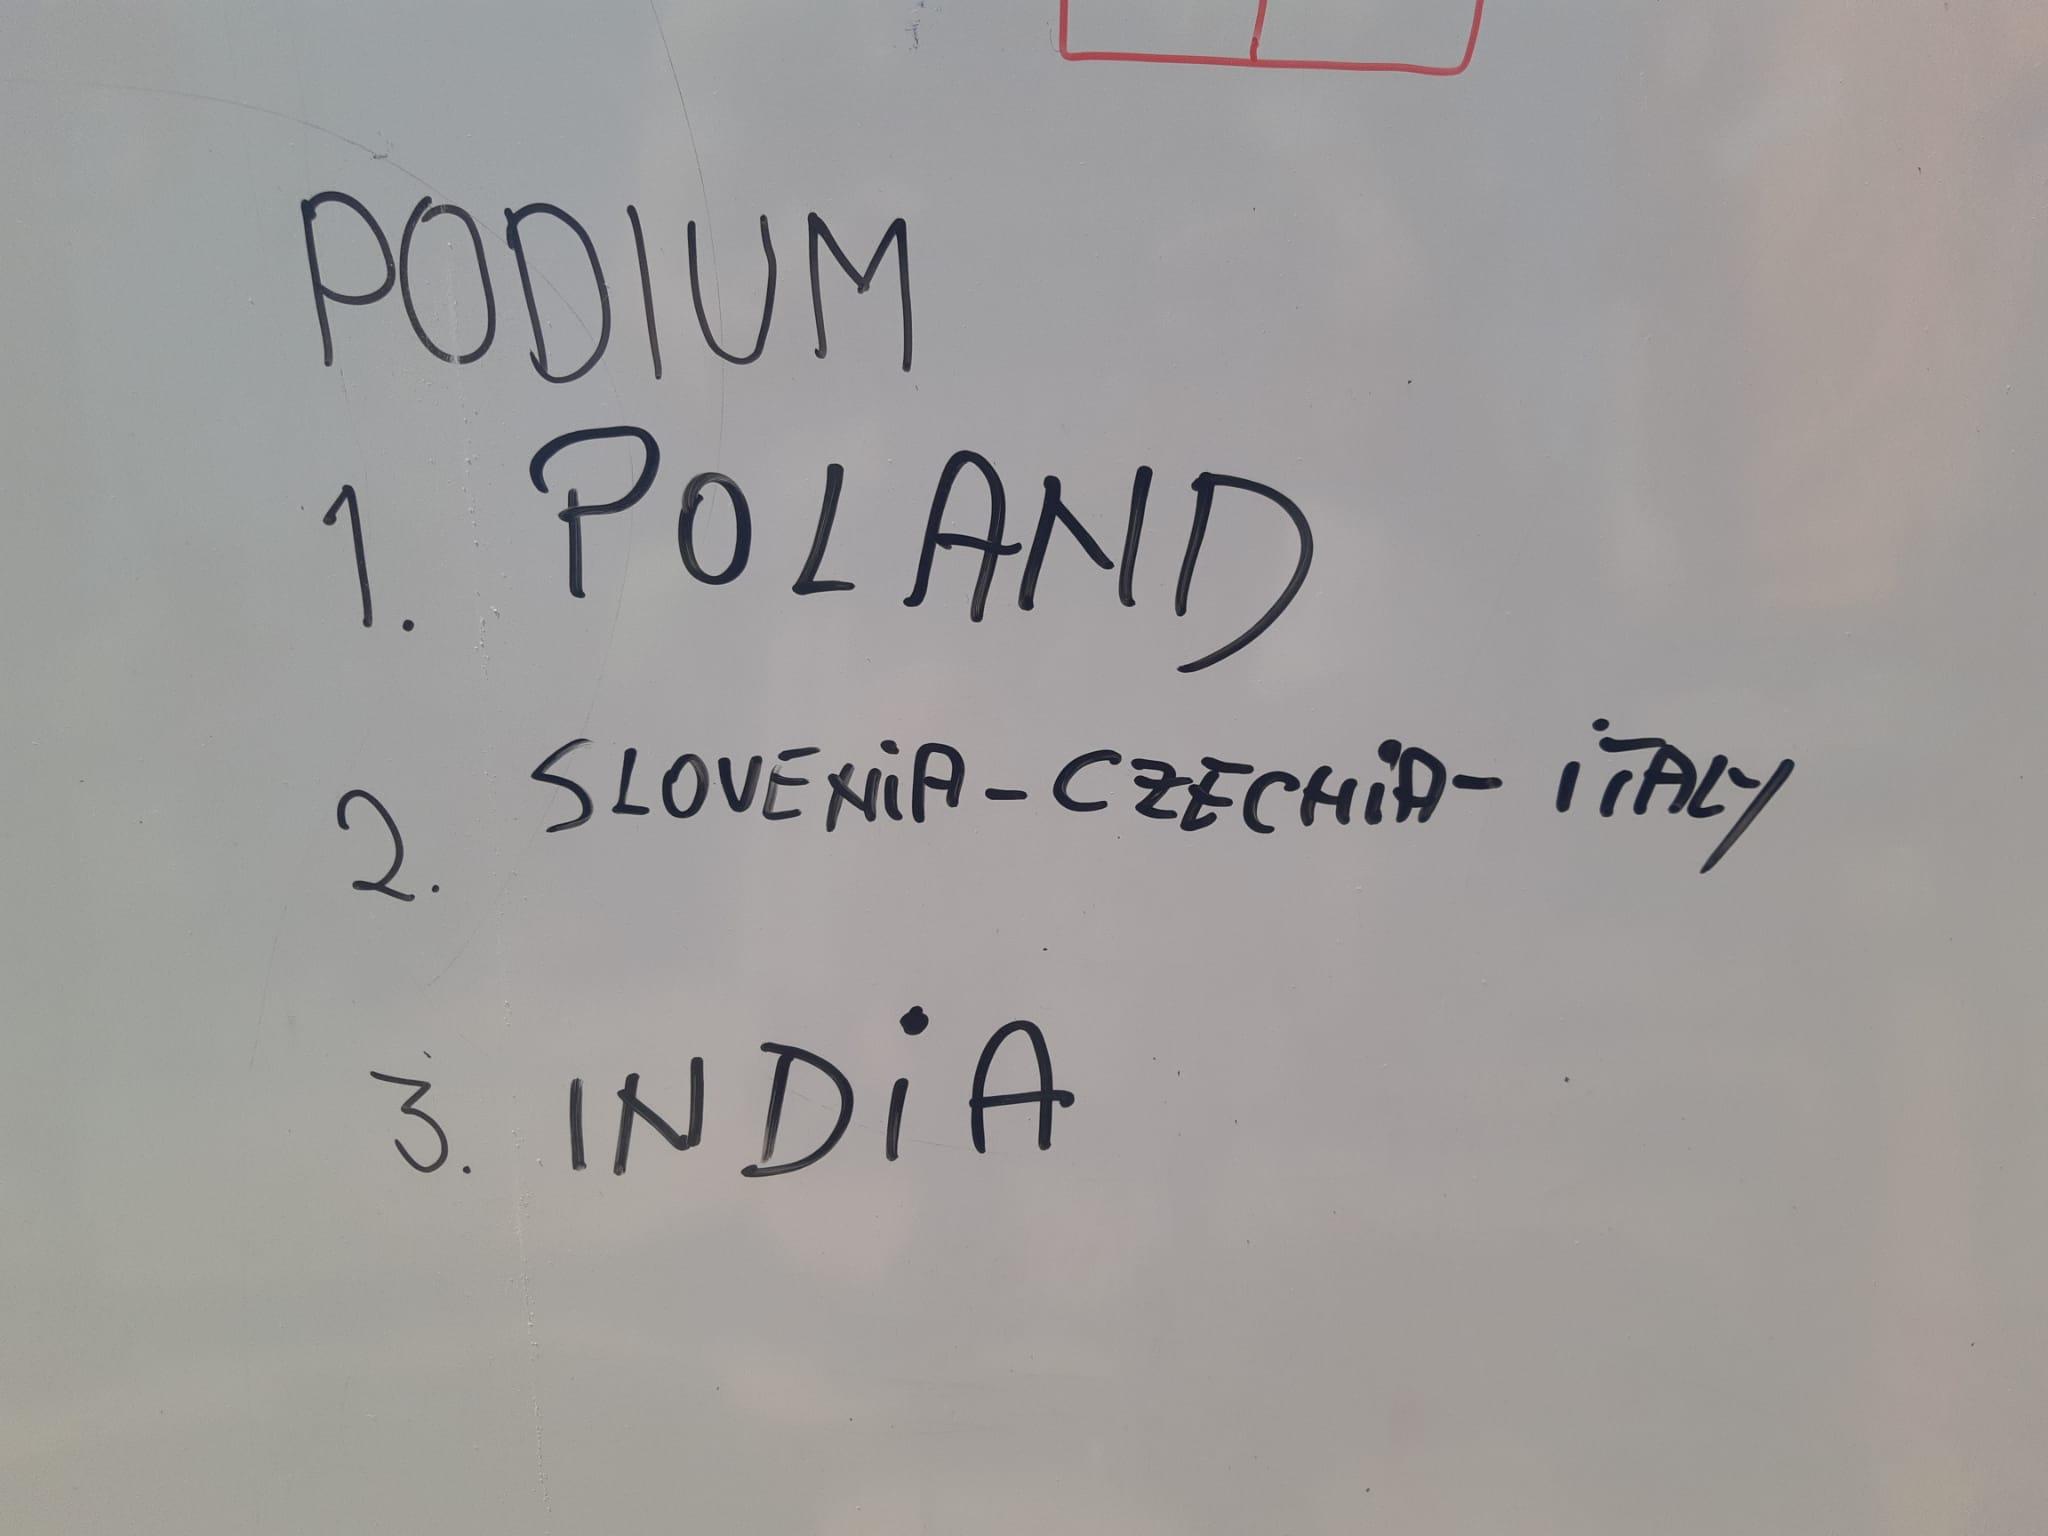 PODIUM
1. POLAND
2. SLOVENiA - CZECHiA - iTALY
3. INDiA